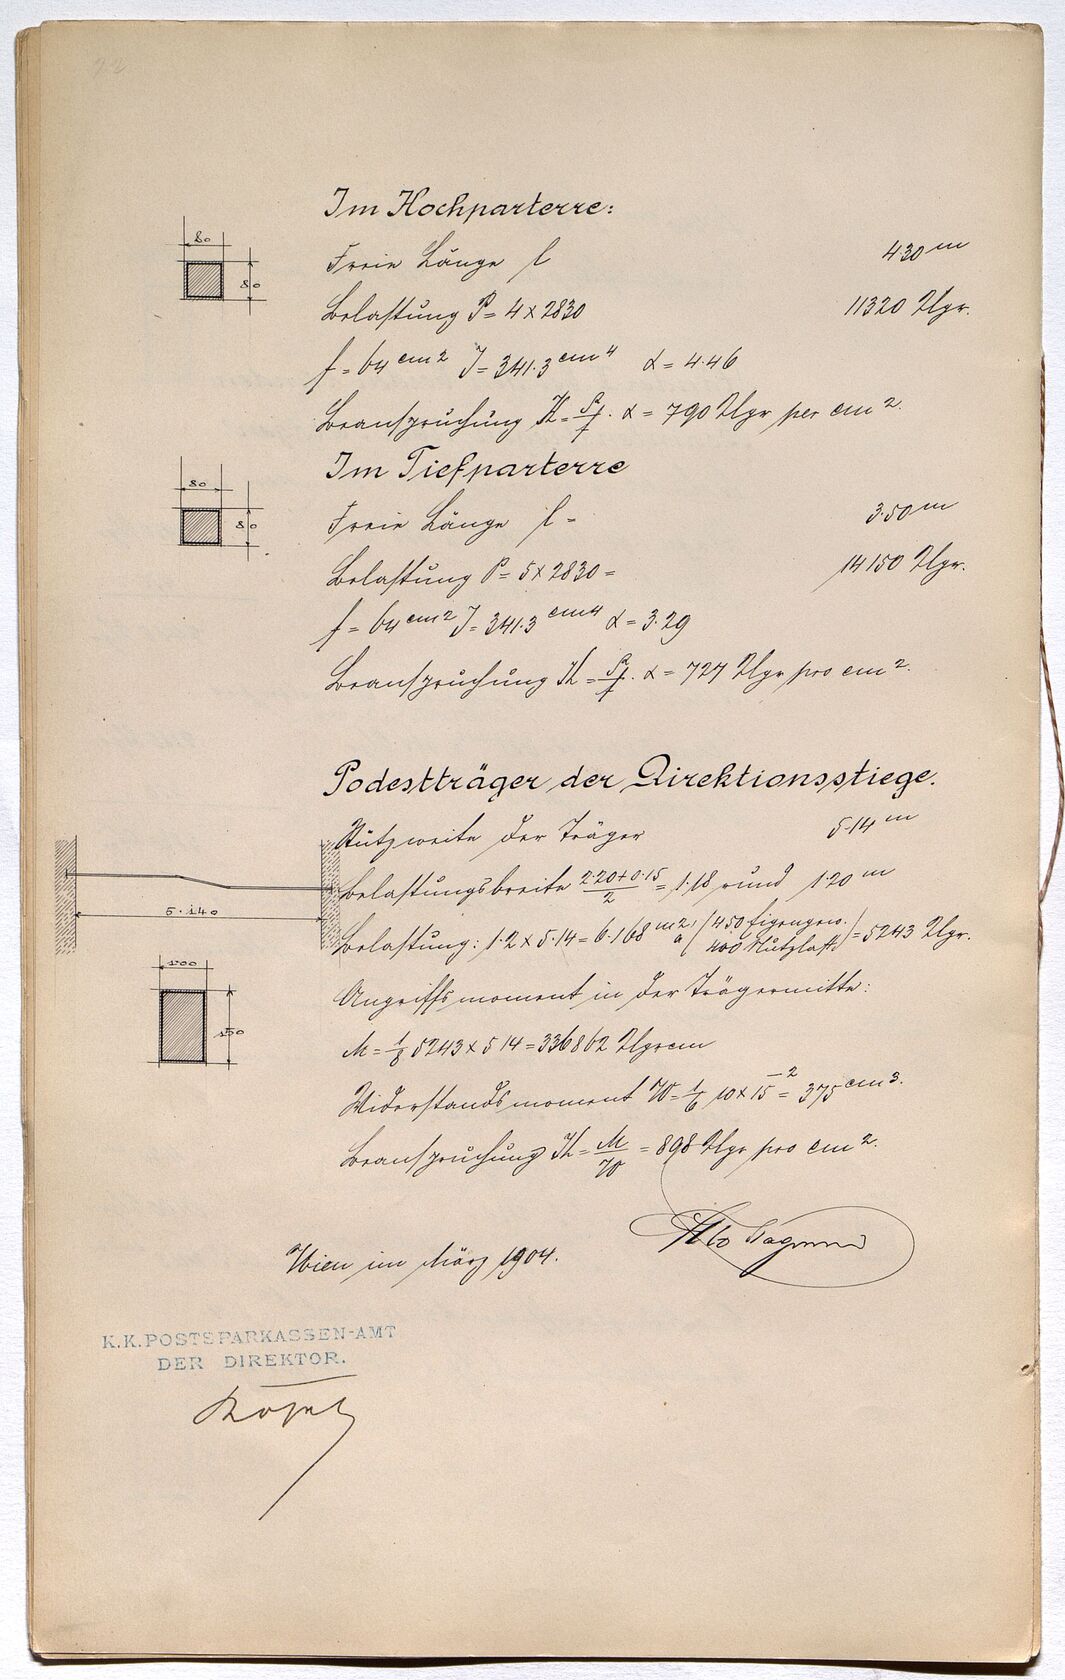 Im Hochparterre:
80
80
Freie Länge l 4·30 m
Belastung P = 4 x 2830 11320 Klgr.
f = 64 cm2 J = 341·3 cm4 α = 4·46
Beanspruchung K = P/f · α = 790 Klgr per cm2.
Im Tiefparterre
80
80
Freie Länge l = 3·50 m
Belastung P = 5 x 2830 = 14150 Klgr.
f = 64 cm2 J = 341·3 cm4 α = 3·29
Beanspruchung K = P/f · α = 727 Klgr pro cm2.
Podestträger der Direktionsstiege.
Stützweite der Träger 5·14 m
Belastungsbreite 2·20+0·15/2 = 1·18 rund 1·20 m
5·140
Belastung: 1·2 x 5·14 = 6·168 m2 à (450 Eigengew. 400 Nutzlast) = 5243 Klgr.
100
150
Angriffsmoment in der Trägermitte:
M = 1/8 5243 x 514 = 336862 Klgrcm
Widerstandsmoment W = 1/6 10 x 15 2 = 375 cm3.
Beanspruchung K = M/W = 898 Klgr pro cm2.
Otto Wagner
Wien im März 1904.
K.K. POSTSPARKASSEN-AMT
DER DIREKTOR.